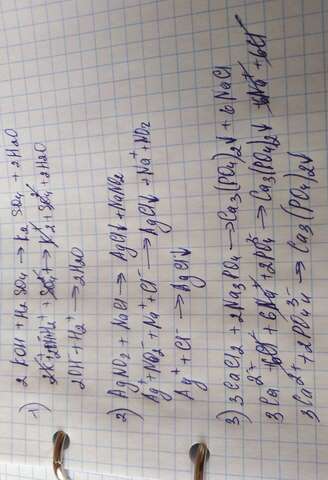 1) 2KOH + H2SO4 → K2SO4 + 2H2O
2OH + H2+ → 2H2O
2) AgNO2 + NaCl → AgCl↓ + NaNO2
Ag+ + NO2 + Na+ + Cl- → AgCl↓ + Na+ + NO2
Ag+ + Cl- → AgCl↓
3) 3CaCl2 + 2Na3PO4 → Ca3(PO4)2↓ + 6NaCl
3Ca2+ + 6Cl- + 6Na+ + 2PO4 → Ca3(PO4)2↓ 6Na+ + 6Cl-
3Ca2+ + 2PO4 3- → Ca3(PO4)2↓